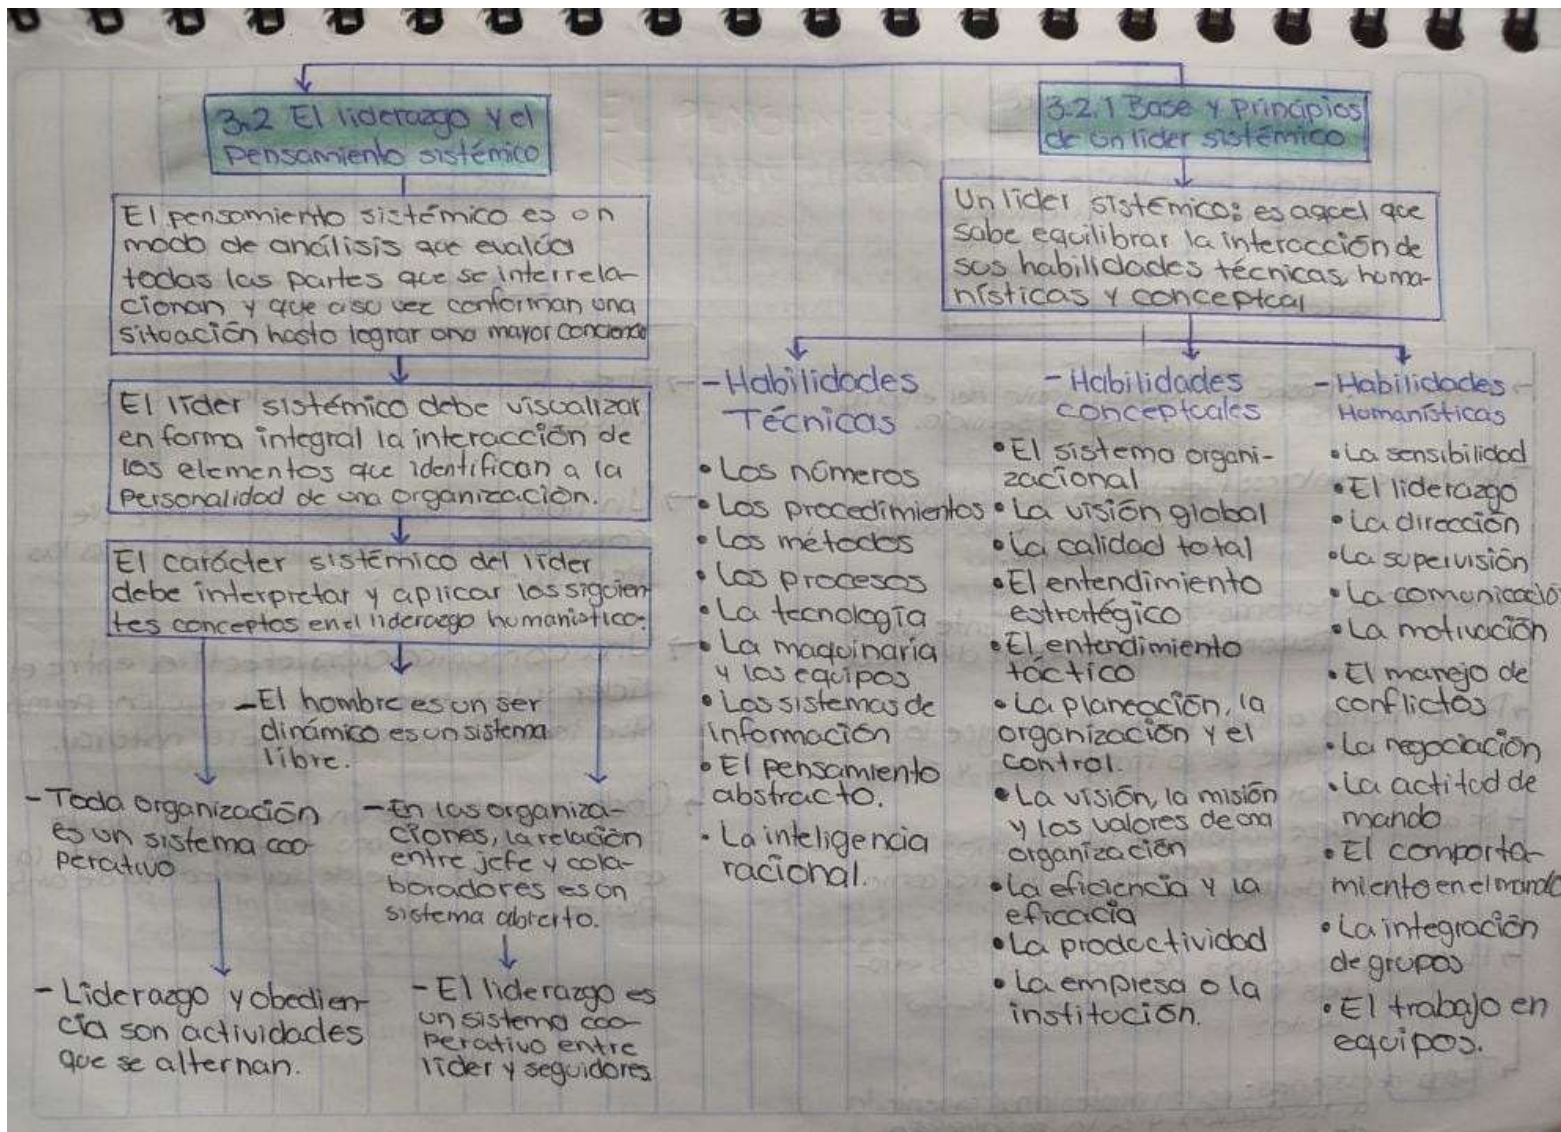 3.2 El liderazgo y el
pensamiento sistémico
El pensamiento sistémico es un
modo de análisis que evalúa
todas las partes que se interrela-
cionan y que a su vez conforman una
situación hasta lograr una mayor conciencia
El líder sistémico debe visualizar
en forma integral la interacción de
los elementos que identifican a la
Personalidad de una organización.
El carácter sistémico del líder
debe interpretar y aplicar los siguien
tes conceptos en el liderazgo humanístico:
- El hombre es un ser
dinámico es un sistema
libre.
- Toda organización
es un sistema coo-
perativo
- En las organiza-
ciones, la relación
entre jefe y cola-
boradores es un
sistema abierto.
- Liderazgo y obedien-
cia son actividades
que se alternan.
- El liderazgo es
un sistema coo-
perativo entre
líder y seguidores
3.2.1 Base y principios
de un líder sistémico
Un líder sistémico: es aquel que
sabe equilibrar la interacción de
sus habilidades técnicas, huma-
nísticas y conceptual
- Habilidades
Técnicas
• Los números
• Los procedimientos
• Los métodos
• Los procesos
• La tecnología
• La maquinaria
y los equipos
• Los sistemas de
información
• El pensamiento
abstracto.
• La inteligencia
racional.
- Habilidades
conceptuales
• El sistema organi-
zacional
• La visión global
• La calidad total
• El entendimiento
estratégico
• El entendimiento
táctico
• La planeación, la
organización y el
control.
• La visión, la misión
y los valores de una
organización
• La eficiencia y la
eficacia
• La productividad
• La empresa o la
institución.
- Habilidades
Humanísticas
• La sensibilidad
• El liderazgo
• La dirección
• La supervisión
• La comunicació
• La motivación
• El manejo de
conflictos
• La negociación
• La actitud de
mando
• El comporta-
miento en el mando
• La integración
de grupos
• El trabajo en
equipos.